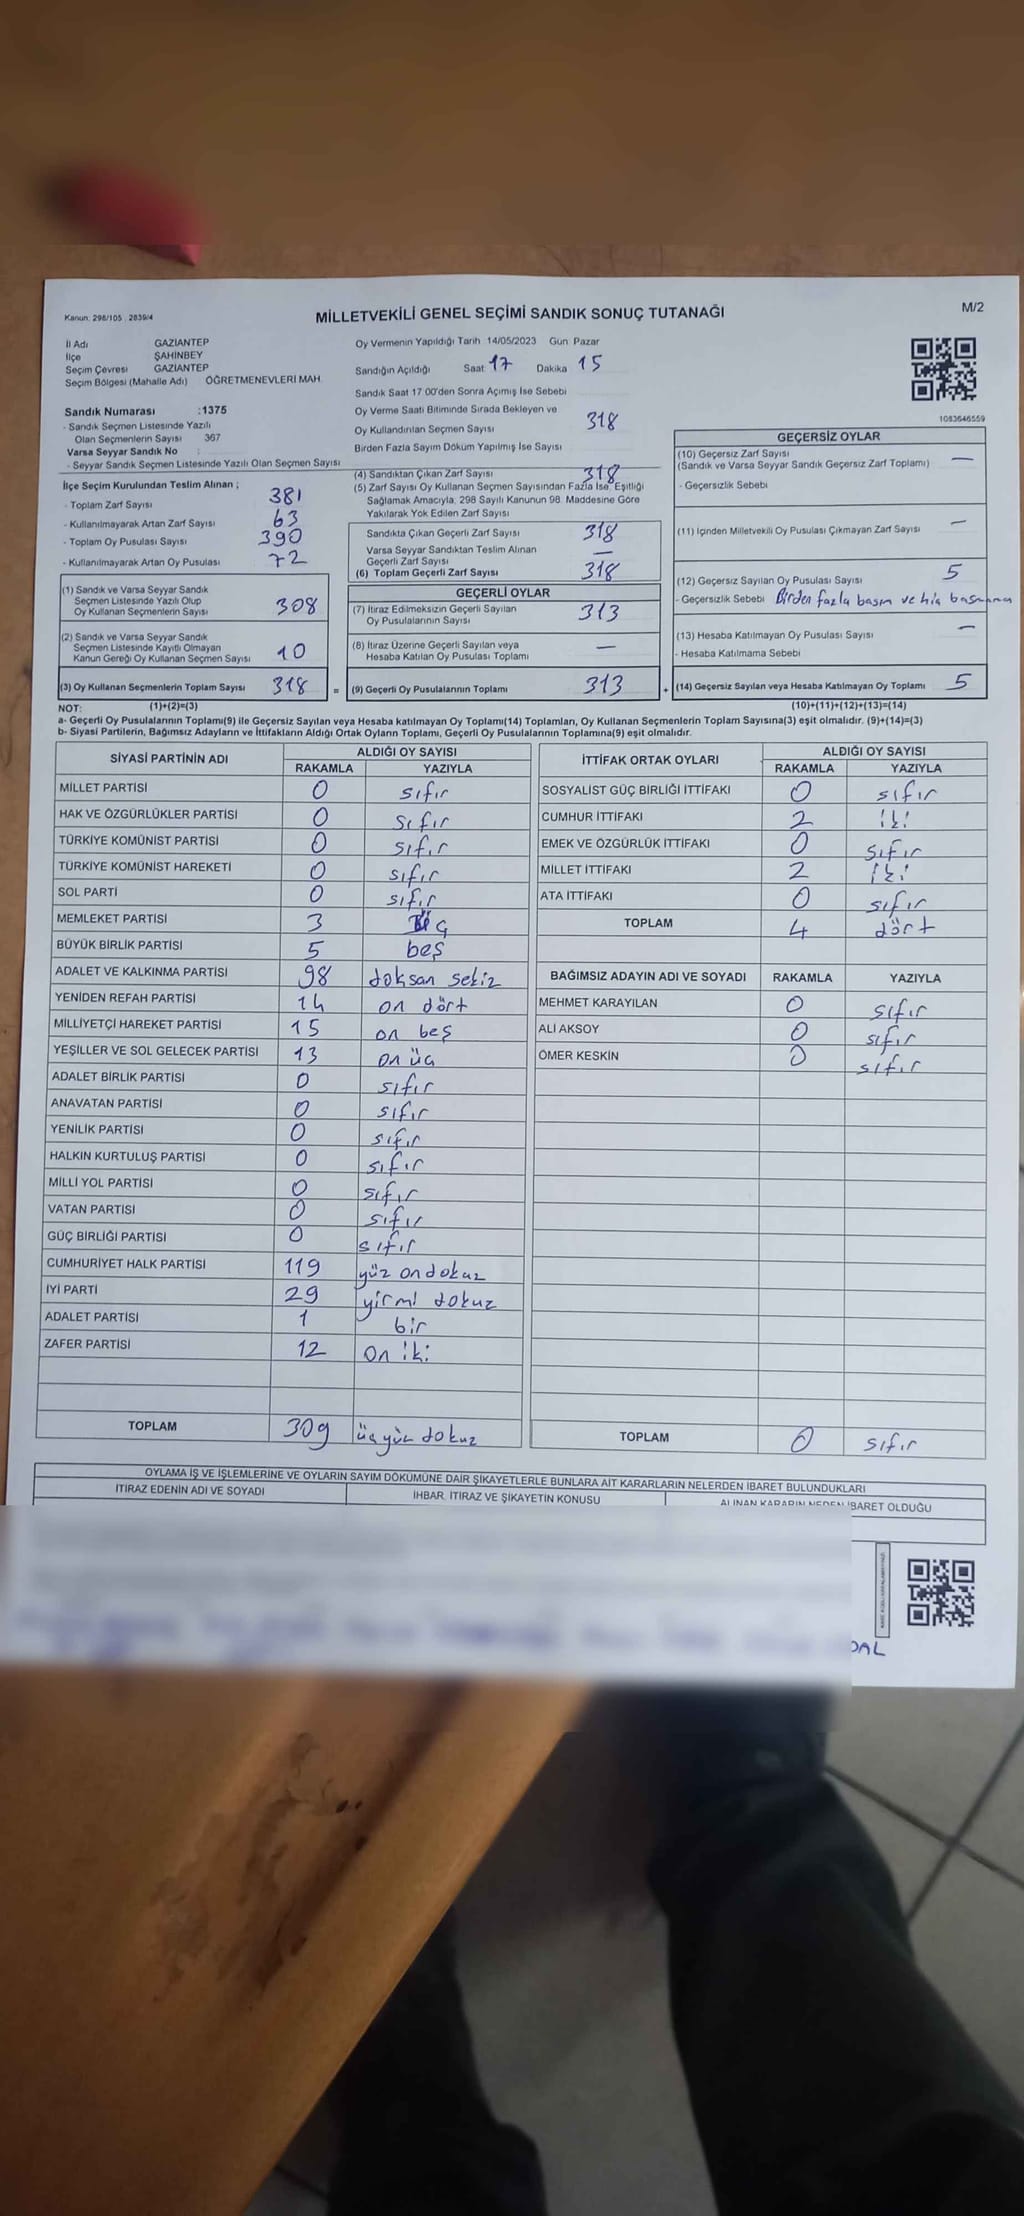 Kanun: 298/105 , 2839/4
MİLLETVEKİLİ GENEL SEÇİMİ SANDIK SONUÇ TUTANAĞI
M/2
İl Adı GAZİANTEP
İlçe ŞAHİNBEY
Seçim Çevresi GAZİANTEP
Seçim Bölgesi (Mahalle Adı) ÖĞRETMENEVLERİ MAH.
Sandık Numarası :1375
- Sandık Seçmen Listesinde Yazılı
Olan Seçmenlerin Sayısı 367
Varsa Seyyar Sandık No :
- Seyyar Sandık Seçmen Listesinde Yazılı Olan Seçmen Sayısı
İlçe Seçim Kurulundan Teslim Alınan ;
- Toplam Zarf Sayısı 381
- Kullanılmayarak Artan Zarf Sayısı 63
- Toplam Oy Pusulası Sayısı 390
- Kullanılmayarak Artan Oy Pusulası 72
(1) Sandık ve Varsa Seyyar Sandık
Seçmen Listesinde Yazılı Olup
Oy Kullanan Seçmenlerin Sayısı 308
(2) Sandık ve Varsa Seyyar Sandık
Seçmen Listesinde Kayıtlı Olmayan
Kanun Gereği Oy Kullanan Seçmen Sayısı 10
(3) Oy Kullanan Seçmenlerin Toplam Sayısı 318 =
Oy Vermenin Yapıldığı Tarih 14/05/2023 Gün: Pazar
Sandığın Açıldığı Saat: 17 Dakika 15
Sandık Saat 17:00'den Sonra Açımış İse Sebebi
Oy Verme Saati Bitiminde Sırada Bekleyen ve
Oy Kullandırılan Seçmen Sayısı 318
Birden Fazla Sayım Döküm Yapılmış İse Sayısı
(4) Sandıktan Çıkan Zarf Sayısı 318
(5) Zarf Sayısı Oy Kullanan Seçmen Sayısından Fazla İse, Eşitliği
Sağlamak Amacıyla, 298 Sayılı Kanunun 98. Maddesine Göre
Yakılarak Yok Edilen Zarf Sayısı
Sandıkta Çıkan Geçerli Zarf Sayısı 318
Varsa Seyyar Sandıktan Teslim Alınan
Geçerli Zarf Sayısı —
(6) Toplam Geçerli Zarf Sayısı 318
GEÇERLİ OYLAR
(7) İtiraz Edilmeksizin Geçerli Sayılan
Oy Pusulalarının Sayısı 313
(8) İtiraz Üzerine Geçerli Sayılan veya
Hesaba Katılan Oy Pusulası Toplamı —
(9) Geçerli Oy Pusulalarının Toplamı 313 +
1083646559
GEÇERSİZ OYLAR
(10) Geçersiz Zarf Sayısı —
(Sandık ve Varsa Seyyar Sandık Geçersiz Zarf Toplamı)
- Geçersizlik Sebebi
(11) İçinden Milletvekili Oy Pusulası Çıkmayan Zarf Sayısı —
(12) Geçersiz Sayılan Oy Pusulası Sayısı 5
- Geçersizlik Sebebi Birden fazla basım ve hiç basmama
(13) Hesaba Katılmayan Oy Pusulası Sayısı —
- Hesaba Katılmama Sebebi
(14) Geçersiz Sayılan veya Hesaba Katılmayan Oy Toplamı 5
NOT: (1)+(2)=(3) (10)+(11)+(12)+(13)=(14)
a- Geçerli Oy Pusulalarının Toplamı(9) ile Geçersiz Sayılan veya Hesaba katılmayan Oy Toplamı(14) Toplamları, Oy Kullanan Seçmenlerin Toplam Sayısına(3) eşit olmalıdır. (9)+(14)=(3)
b- Siyasi Partilerin, Bağımsız Adayların ve İttifakların Aldığı Ortak Oyların Toplamı, Geçerli Oy Pusulalarının Toplamına(9) eşit olmalıdır.
SİYASİ PARTİNİN ADI ALDIĞI OY SAYISI
RAKAMLA YAZIYLA
MİLLET PARTİSİ 0 sıfır
HAK VE ÖZGÜRLÜKLER PARTİSİ 0 sıfır
TÜRKİYE KOMÜNİST PARTİSİ 0 sıfır
TÜRKİYE KOMÜNİST HAREKETİ 0 sıfır
SOL PARTİ 0 sıfır
MEMLEKET PARTİSİ 3 üç
BÜYÜK BİRLİK PARTİSİ 5 beş
ADALET VE KALKINMA PARTİSİ 98 doksan sekiz
YENİDEN REFAH PARTİSİ 14 on dört
MİLLİYETÇİ HAREKET PARTİSİ 15 on beş
YEŞİLLER VE SOL GELECEK PARTİSİ 13 on üç
ADALET BİRLİK PARTİSİ 0 sıfır
ANAVATAN PARTİSİ 0 sıfır
YENİLİK PARTİSİ 0 sıfır
HALKIN KURTULUŞ PARTİSİ 0 sıfır
MİLLİ YOL PARTİSİ 0 sıfır
VATAN PARTİSİ 0 sıfır
GÜÇ BİRLİĞİ PARTİSİ 0 sıfır
CUMHURİYET HALK PARTİSİ 119 yüz ondokuz
İYİ PARTİ 29 yirmi dokuz
ADALET PARTİSİ 1 bir
ZAFER PARTİSİ 12 on iki
TOPLAM 309 üçyüz dokuz
İTTİFAK ORTAK OYLARI ALDIĞI OY SAYISI
RAKAMLA YAZIYLA
SOSYALİST GÜÇ BİRLİĞİ İTTİFAKI 0 sıfır
CUMHUR İTTİFAKI 2 iki
EMEK VE ÖZGÜRLÜK İTTİFAKI 0 sıfır
MİLLET İTTİFAKI 2 iki
ATA İTTİFAKI 0 sıfır
TOPLAM 4 dört
BAĞIMSIZ ADAYIN ADI VE SOYADI RAKAMLA YAZIYLA
MEHMET KARAYILAN 0 sıfır
ALİ AKSOY 0 sıfır
ÖMER KESKİN 0 sıfır
TOPLAM 0 sıfır
OYLAMA İŞ VE İŞLEMLERİNE VE OYLARIN SAYIM DÖKÜMÜNE DAİR ŞİKAYETLERLE BUNLARA AİT KARARLARIN NELERDEN İBARET BULUNDUKLARI
İTİRAZ EDENİN ADI VE SOYADI İHBAR, İTİRAZ VE ŞİKAYETİN KONUSU ALINAN KARARIN NEDEN İBARET OLDUĞU